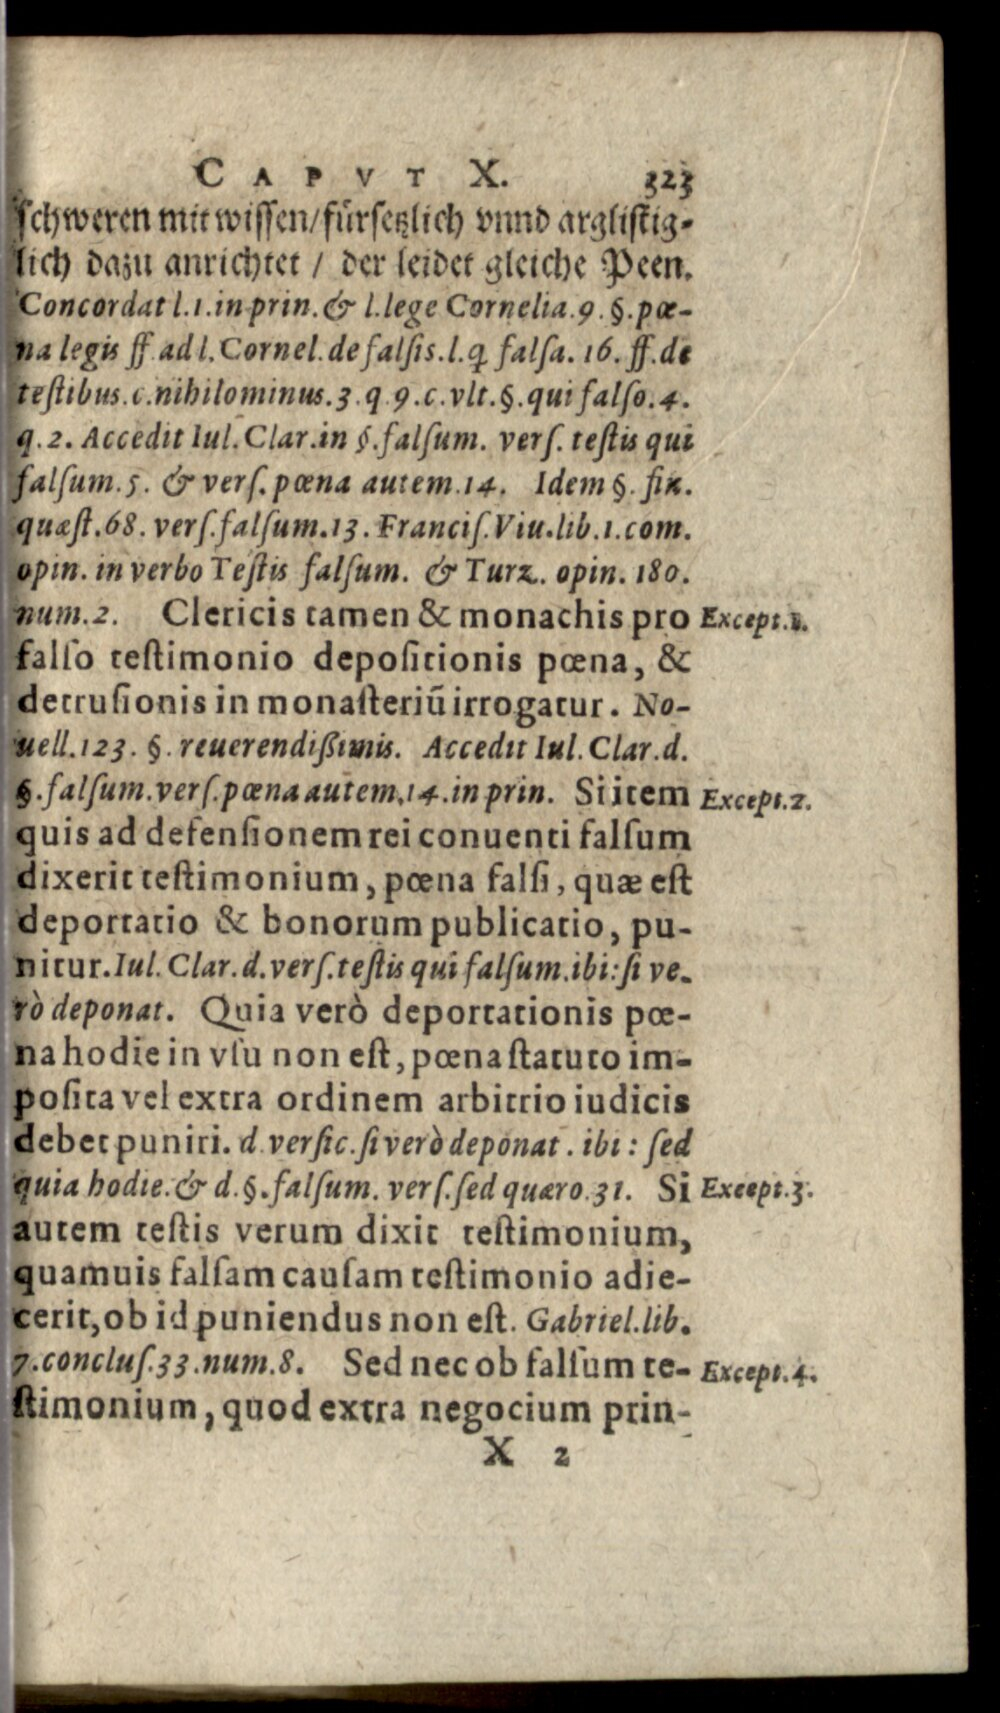 CAPVT X. 323
schweren mit wissen/fürsetzlich vnnd arglistig-
lich dazu anrichtet / der leidet gleiche Peen.
Concordat l.1.in prin.& l.lege Cornelia.9.§.pœ-
na legis ff.ad l.Cornel.de falsis.l.q̄ falsa.16.ff.de
testibus.c.nihilominus.3.q 9.c.vlt.§.qui falso.4.
q.2. Accedit Iul.Clar.in §.falsum. vers. testis qui
falsum.5. & vers.pœna autem.14. Idem §. fin.
quæst.68. vers.falsum.13. Francis.Viu.lib.1.com.
opin. in verbo Testis falsum. & Turz. opin. 180.
num.2. Clericis tamen & monachis pro Except.1.
falso testimonio depositionis pœna, &
detrusionis in monasteriū irrogatur. No-
uell.123. §. reuerendißimis. Accedit Iul.Clar.d.
§.falsum.vers.pœna autem.14.in prin. Si item Except.2.
quis ad defensionem rei conuenti falsum
dixerit testimonium, pœna falsi, quæ est
deportatio & bonorum publicatio, pu-
nitur.Iul.Clar.d.vers.testis qui falsum.ibi:si ve-
rò deponat. Quia verò deportationis pœ-
na hodie in vsu non est, pœna statuto im-
posita vel extra ordinem arbitrio iudicis
debet puniri. d versic.si verò deponat. ibi: sed
quia hodie.& d.§.falsum. vers.sed quæro.31. Si Except.3.
autem testis verum dixit testimonium,
quamuis falsam causam testimonio adie-
cerit, ob id puniendus non est. Gabriel.lib.
7.conclus.33.num.8. Sed nec ob falsum te- Except.4.
stimonium, quod extra negocium prin-
X 2